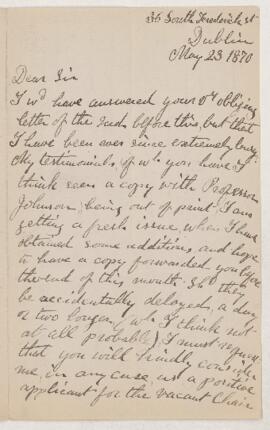 36 South Frederick St
Dublin
May 23 1870
Dear Sir
I wd have answered your vy obliging
letter of the before this but that
I have been ever since extremely busy.
My testimonials, of wh you have I
think seen a copy with Professor
Johnson, being out of print, I am
getting a fresh issue, when I have
obtained some additions and hope
to have a copy forwarded you before
the end of this month. Shd they
be accidentally delayed, a day
or two longer (wh I think not
at all probable) I must request
that you will kindly consider
me, in any case, as a positive
applicant for the vacant Chair